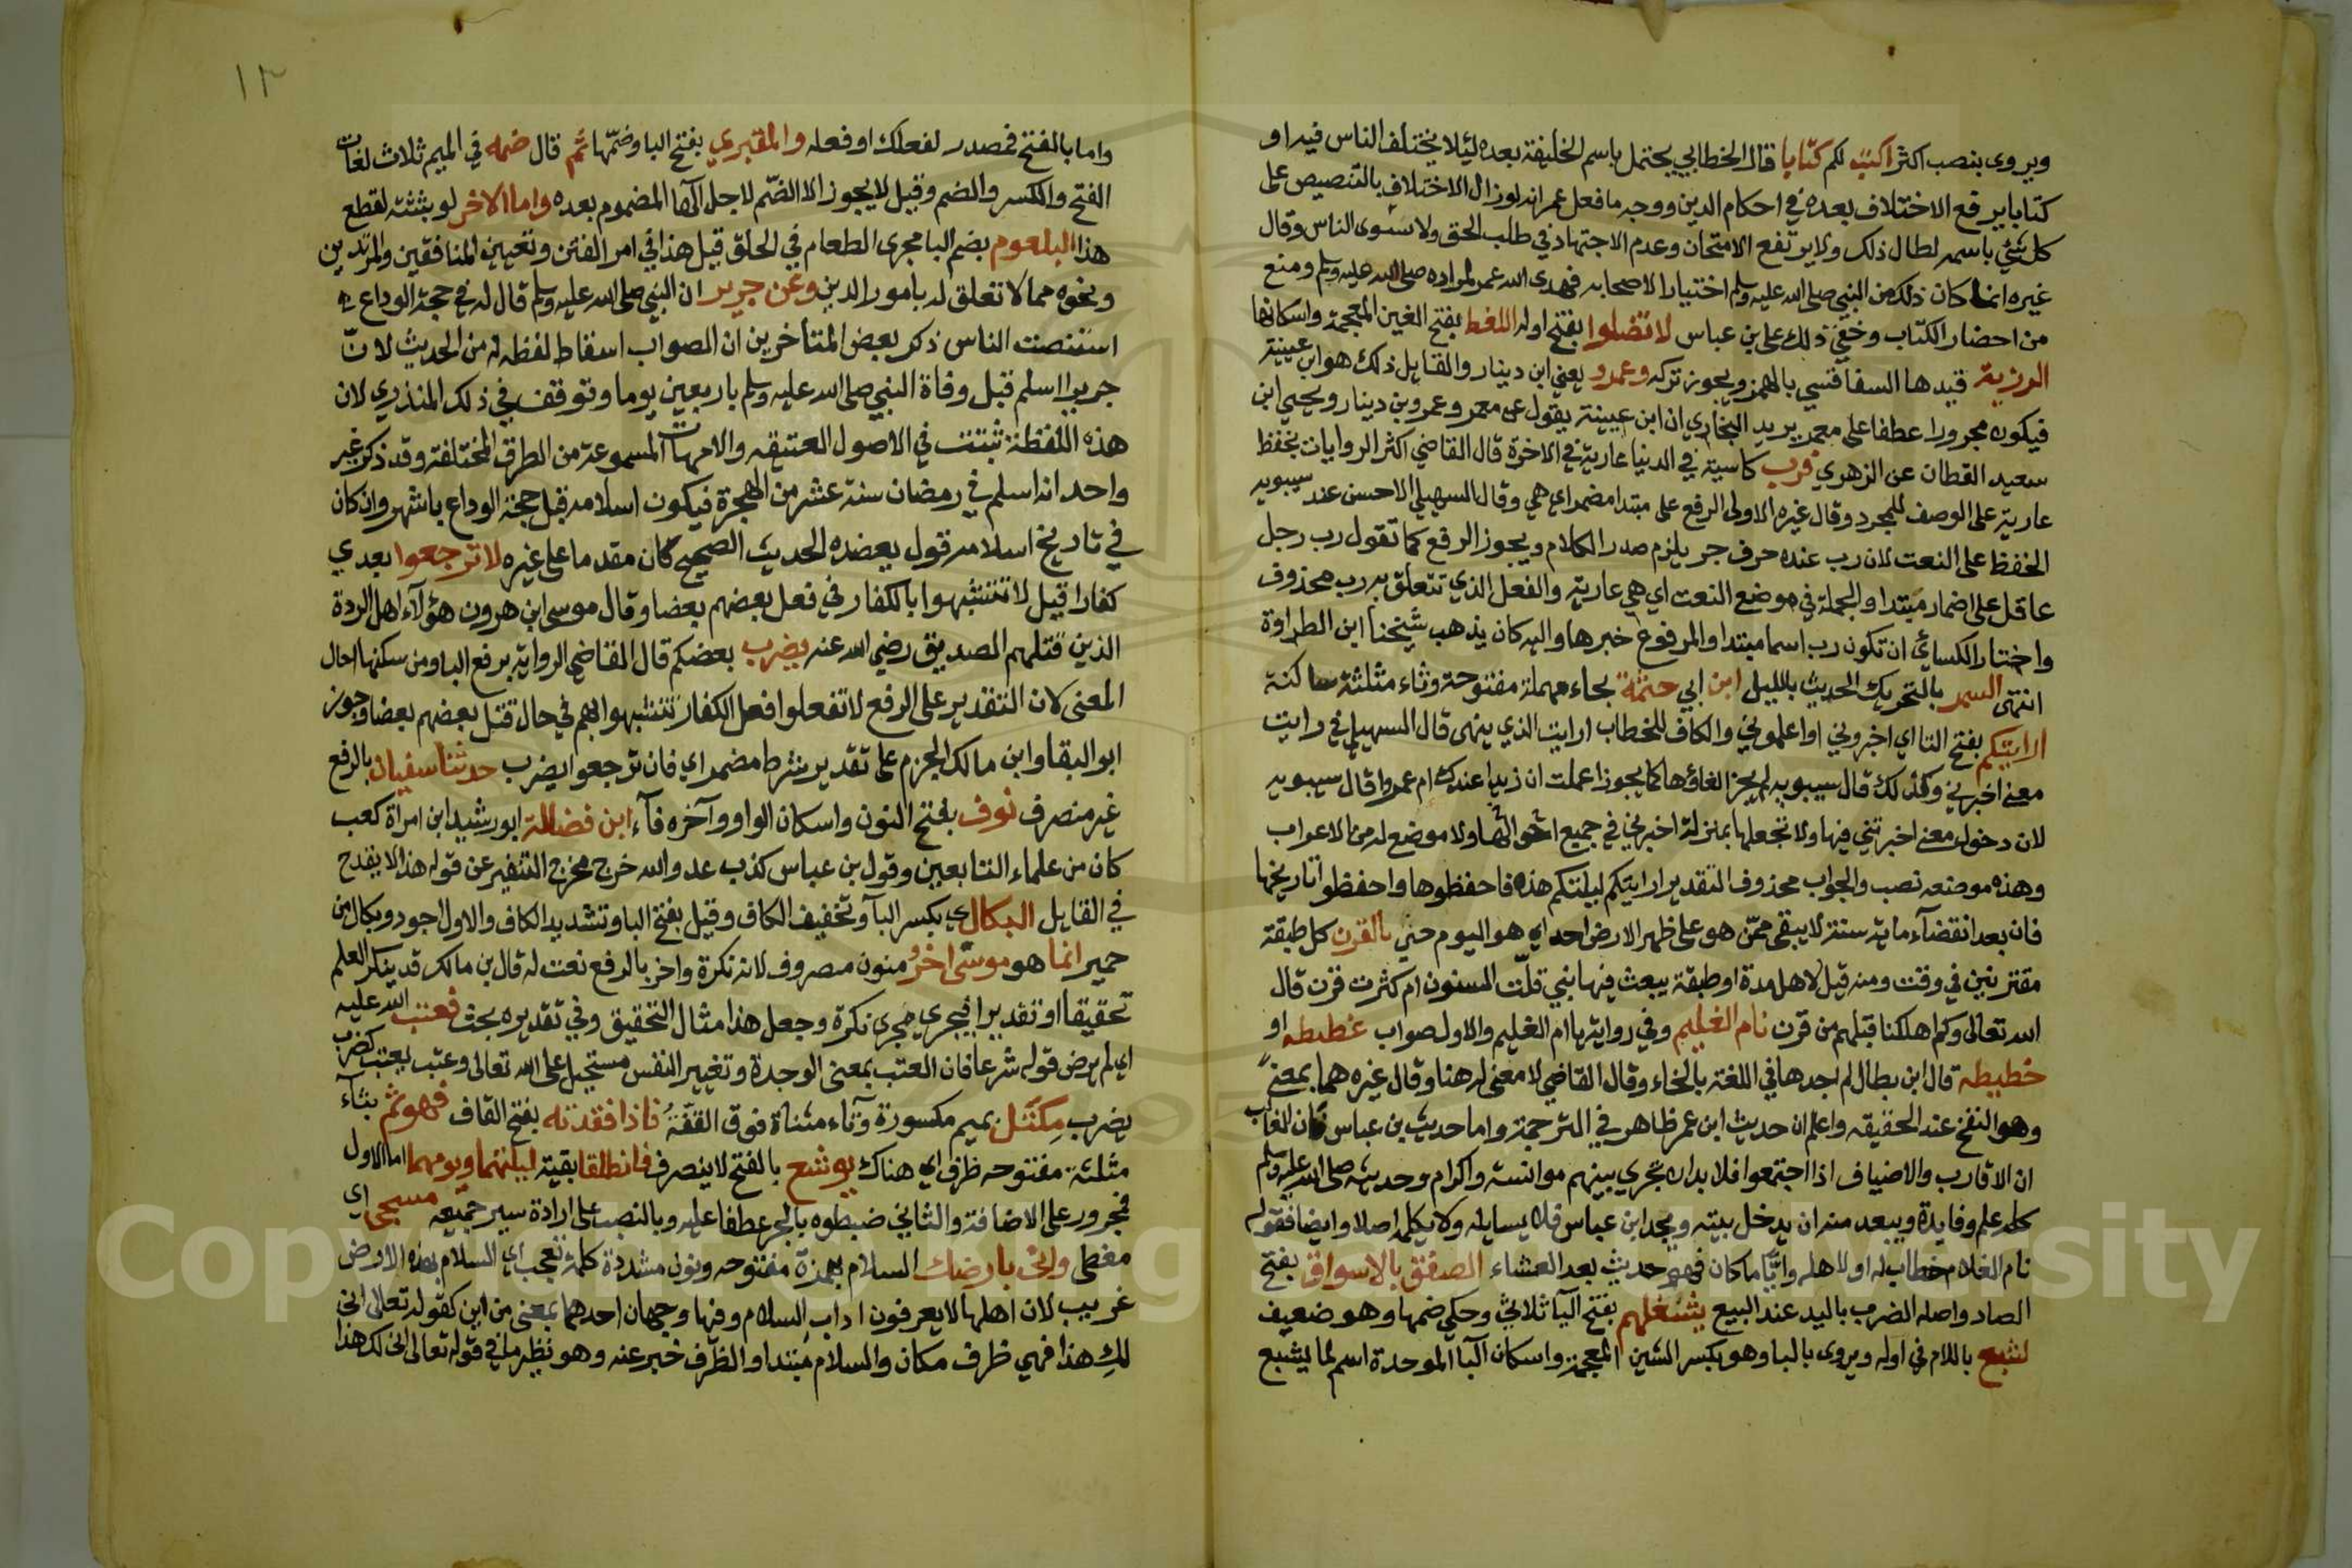 ويروى بنصب اكثر اكتب لكم كتابا قال الخطابي يحتمل باسم الخليفة بعده لئلا يختلف الناس فيه او
كتابا يرفع الاختلاف بعده في احكام الدين ووجه ما فعل عمر انه لو زال الاختلاف بالتنصيص على
كل شيء باسمه لطال ذلك ولا يرتفع الامتحان وعدم الاجتهاد في طلب الحق ولاستوى الناس وقال
غيره انما كان ذلك من النبي صلى الله عليه وسلم اختيارا لاصحابه فهدى الله عمر لمراده صلى الله عليه وسلم ومنع
من احضار الكتاب وخفي ذلك على بن عباس لا تضلوا بفتح اوله اللغط بفتح الغين المعجمة واسكانها
الرزية قيدها السفاقسي بالهمز ويجوز تركه وعمرو يعني ابن دينار والقايل ذلك هو ابن عيينة
فيكون مجرورا عطفا على معمر يريد البخاري ان ابن عيينة يقول عن معمر وعمرو بن دينار ويحيي ابن
سعيد القطان عن الزهري فرب كاسية في الدنيا عارية في الاخرة قال القاضي اكثر الروايات بخفظ
عارية على الوصف للمجرد وقال غيره الاولى الرفع على مبتدا مضمر اي هي وقال السهيلي الاحسن عند سيبويه
الخفظ على النعت لان رب عنده حرف جر يلزم صدر الكلام ويجوز الرفع كما تقول رب رجل
عاقل على اضمار مبتدا والجملة في موضع النعت اي هي عارية والفعل الذي تتعلق به رب محذوف
واختار الكسائي ان تكون رب اسما مبتدا والمرفوع خبرها واليه كان يذهب شيخنا ابن الطراوة
انتهى السمر بالتحريك الحديث بالليل ابن ابي حثمة بحاء مهملة مفتوحة وثاء مثلثة ساكنة
ارايتكم بفتح التا اي اخبروني او اعلموني والكاف للخطاب ارايت الذي ينهى قال السهيلي في رايت
معنى اخبرني وكذلك قال سيبويه لم يجز الغاؤها كما يجوز اعلمت ان زيدا عندك ام عمرو اقال سيبويه
لان دخول معنى اخبرتني فيها ولا تجعلها بمنزلة اخبرني في جميع احوالها ولا موضع له من الاعراب
وهذه موضعه نصب والجواب محذوف التقدير ارايتكم ليلتكم هذه فاحفظوها واحفظوا تاريخها
فان بعد انقضآء ماية سنة لا يبقى ممن هو على ظهر الارض احد اي هو اليوم حتى بالقرن كل طبقة
مقترنين في وقت ومنه قيل لاهل مدة او طبقة يبعث فيها نبي قلت السنون ام كثرت قرن قال
الله تعالى وكم اهلكنا قبلهم من قرن نام الغليم وفي رواية يا ام الغليم والاول صواب غطيطه او
خطيطه قال ابن بطال لم اجدها في اللغة بالخاء وقال القاضي لا معنى له هنا وقال غيره هما بمعنى
وهو النفخ عند الحقيقه واعلم ان حديث ابن عمر ظاهر في الترجمة واما حديث بن عباس فان الغالب
ان الاقارب والاضياف اذا اجتمعوا فلا بد ان تجري بينهم موانسة واكرام وحديثه صلى الله عليه وسلم
كله علم وفايدة ويبعد منه ان يدخل بيته ويجد ابن عباس فلا يسايله ولا يكلمه اصلا وايضا فقوله
نام الغلام خطاب له او لاهله وايا ما كان فهو حديث بعد العشاء الصفق بالاسواق بفتح
الصاد واصله الضرب باليد عند البيع يشغلهم بفتح اليآ ثلاثي وحكي ضمها وهو ضعيف
لشبع باللام في اوله ويروى بالبا وهو بكسر الشين المعجمة واسكان البآ الموحدة اسم لما يشبع
١٣
واما بالفتح فمصدر لفعلك او فعله والمقبري بفتح البا وضمها ثم قال ضمه في الميم ثلاث لغات
الفتح والكسر والضم وقيل لا يجوز الا الضم لاجل الهآ المضموم بعده واما الاخر لو بثثته لقطع
هذا البلعوم بضم البا مجرى الطعام في الحلق قيل هذا في امر الفتن وتعيين المنافقين والمرتدين
ونحوه مما لا تعلق له بامور الدين وعن جرير ان النبي صلى الله عليه وسلم قال له في حجة الوداع
استنصت الناس ذكر بعض المتأخرين ان الصواب اسقاط لفظه له من الحديث لان
جريرا اسلم قبل وفاة النبي صلى الله عليه وسلم باربعين يوما وتوقف في ذلك المنذري لان
هذه اللفظة ثبتت في الاصول العتيقه والامهات المسموعة من الطرق المختلفة وقد ذكر غير
واحد انه اسلم في رمضان سنة عشر من الهجرة فيكون اسلامه قبل حجة الوداع باشهر وان كان
في تاريخ اسلامه قول يعضده الحديث الصحيح كان مقدما على غيره لا ترجعوا بعدي
كفارا قيل لا تتشبهوا بالكفار في فعل بعضهم بعضا وقال موسى ابن هرون هؤلآء اهل الردة
الذين قتلهم الصديق رضي الله عنه يضرب بعضكم قال القاضي الرواية برفع البا ومن سكنها احال
المعنى لان التقدير على الرفع لا تفعلوا فعل الكفار تتشبهوا بهم في حال قتل بعضهم بعضا وجوز
ابو البقا وابن مالك الجزم على تقدير شرط مضمر اي فان ترجعوا يضرب حدثنا سفيان بالرفع
غير منصرف نوف بفتح النون واسكان الواو وآخره فآء ابن فضالة ابو رشيد ابن امراة كعب
كان من علماء التابعين وقول بن عباس كذب عدو الله خرج مخرج التنفير عن قوله هذا لا يقدح
في القايل البكالي بكسر البآ وتخفيف الكاف وقيل بفتح البا وتشديد الكاف والاول اجود وبكال من
حمير انما هو موسى اخر منون مصروف لانه نكرة واخر بالرفع نعت له قال بن مالك قد ينكر العلم
تحقيقا او تقديرا فيجري مجرى نكرة وجعل هذا مثال التحقيق وفي تقديره بحث فعتب الله عليه
اي لم يرض قوله شرعا فان العتب بمعنى الوجدة وتغيير النفس مستحيل على الله تعالى وعتب يعتب كضرب
يضرب مكتل بميم مكسورة وتاء مثناة فوق القفة فاذا فقدته بفتح القاف فهو ثم بثآء
مثلثة مفتوحه ظرف اي هناك يوشع بالفتح لا ينصرف فانطلقا بقية ليلتهما ويومهما اما الاول
فمجرور على الاضافة والثاني ضبطوه بالجر عطفا عليه وبالنصب على ارادة سير جميعه مسجى اي
مغطى وانى بارضك السلام بهمزة مفتوحه ونون مشددة كلمة تعجب اي السلام بهذه الارض
غريب لان اهلها لا يعرفون اداب السلام وفيها وجهان احدهما بمعنى من اين كقوله تعالى انى
لك هذا فهي ظرف مكان والسلام مبتدا والظرف خبر عنه وهو نظير ما في قوله تعالى انى لك هذا
Copyright © King Saud University